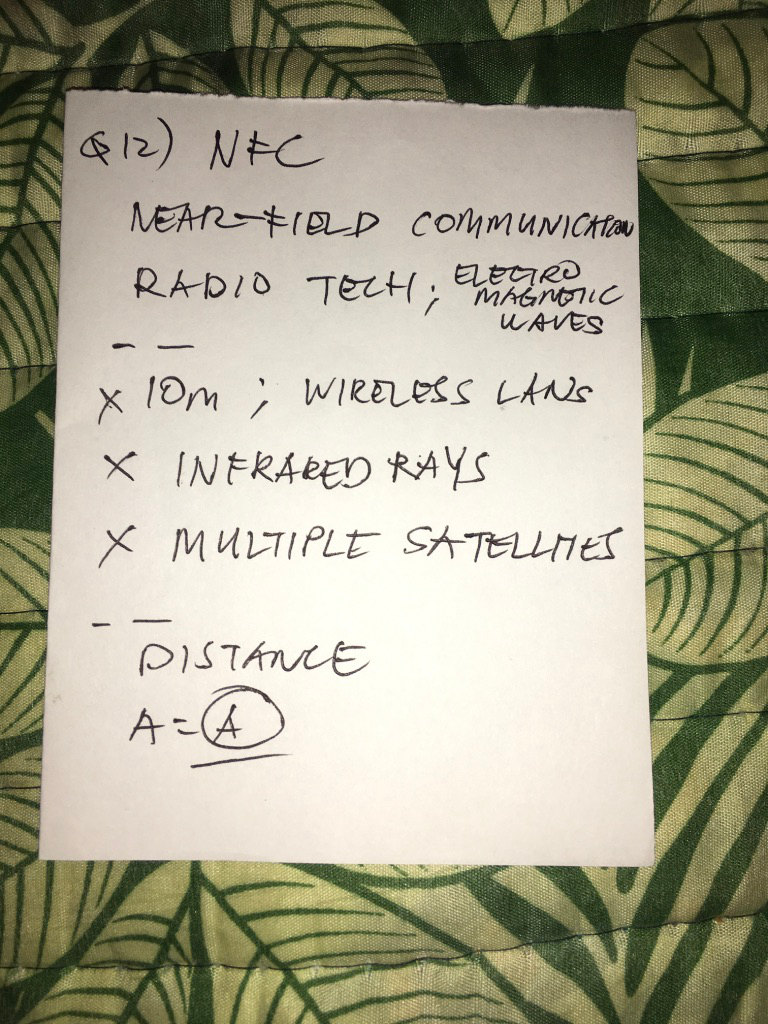 Q12) NFC
NEAR-FIELD COMMUNICATION
RADIO TECH; ELECTRO
MAGNETIC
WAVES
- —
X 10m ; WIRELESS LANS
X INFRARED RAYS
X MULTIPLE SATELLITES
- —
DISTANCE
A = A